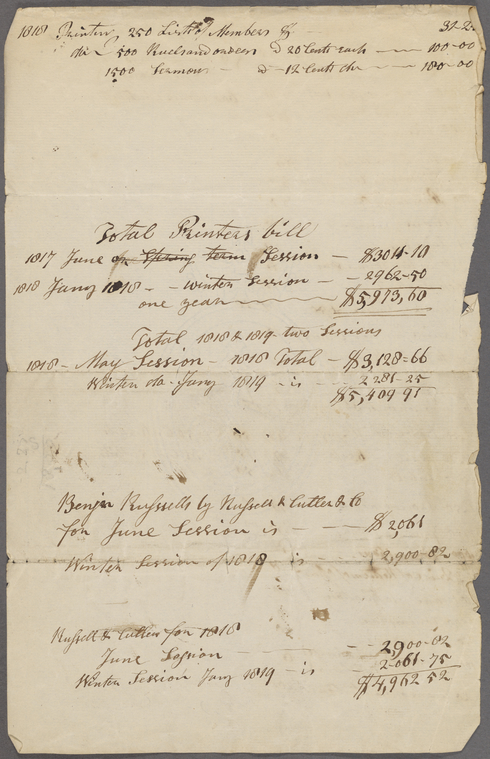 1818 Printer, 250 List of Members &
do - 500 Rules and orders @ 20 Cents each — 100-00
1500 Sermons - @ 12 Cents do — 180-00
Total Printers bill
1817 June Spring term Session - $3011-10
1818 Jany 1818 - - winter Session - - 2962-50
one year $5,973,60
Total 1818 & 1819 - two Sessions
1818 - May Session - 1818 Total - $3,128-66
Winter do - Jany 1819 - is - 2281-25
$5,409-91
Benjn Russells by Russell & Cutler & Co
for June Session is - - - $2,061
Winter Session of 1818 - is 2,900-82
Russell & Cutler for 1818 - - 2,900-82
June Session - - 2-061-75
Winter Session Jany 1819 - is - $4,962 52